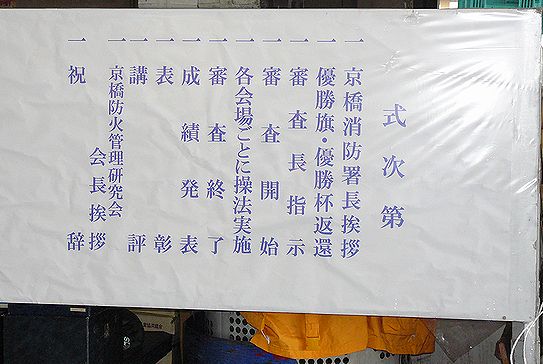 式次第
一 京橋消防署長挨拶
一 優勝旗・優勝杯返還
一 審査長指示
一 審査開始
一 各会場ごとに操法実施
一 審査終了
一 成績発表
一 表彰
一 講評
一 京橋防火管理研究会
会長挨拶
一 祝辞